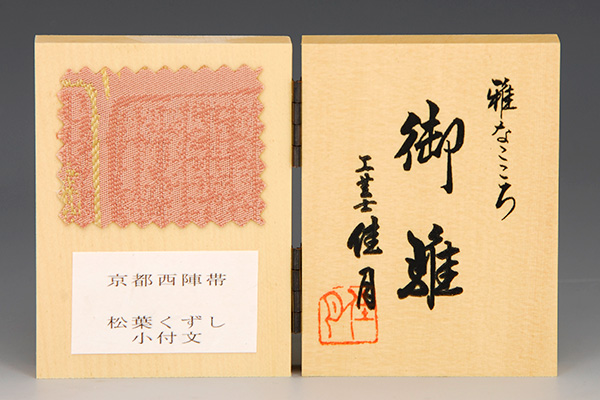 雅なこころ
御雛
工芸士 佳月
佳月
京都西陣帯
松葉くずし
小付文